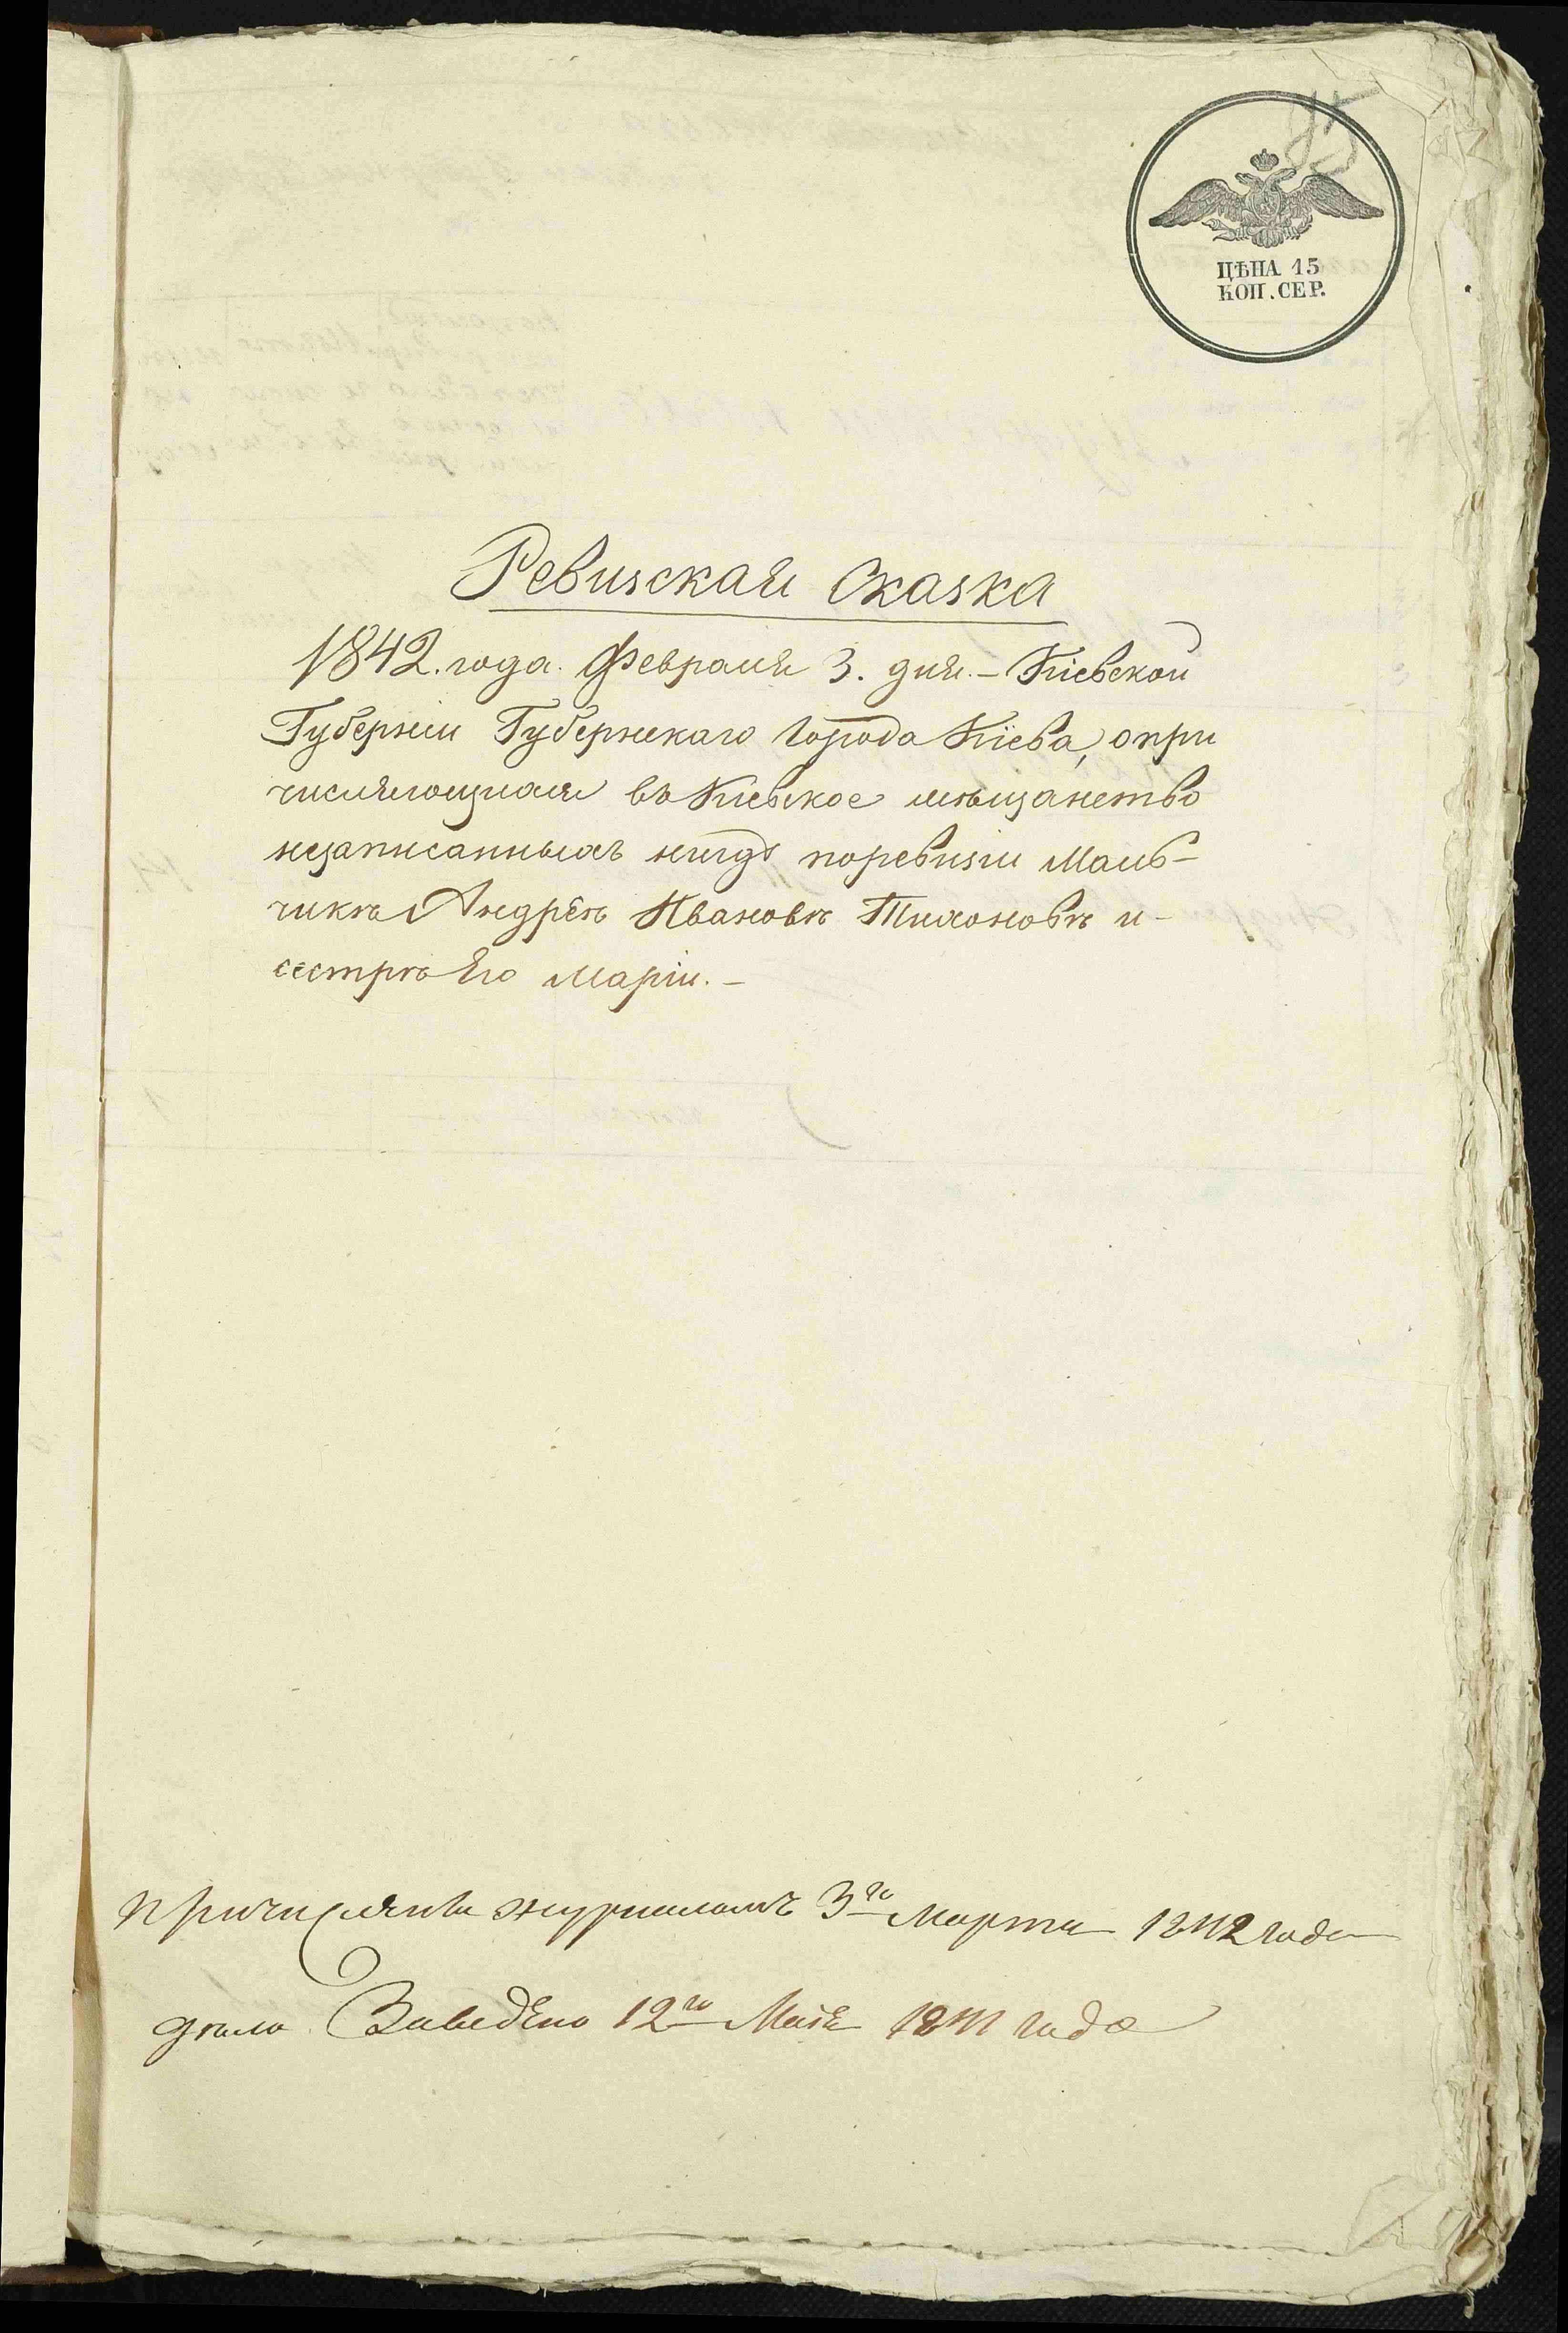 95
ЦѢНА 15
КОП. СЕР.
Ревизская Сказка
1842. года. Февраля 3. дня. – Кіевской
Губерніи Губернскаго Города Кіева, о при
числяющихся въ Кіевское мѣщанство
незаписанныхъ нигдѣ поревизіи Маль-
чикѣ Андреѣ Ивановѣ Тихоновѣ и -
сестрѣ Его Маріи. -
Причислены журналомъ 3го Марта 1842 года
дѣло Заведено 12го Мая 1841 года